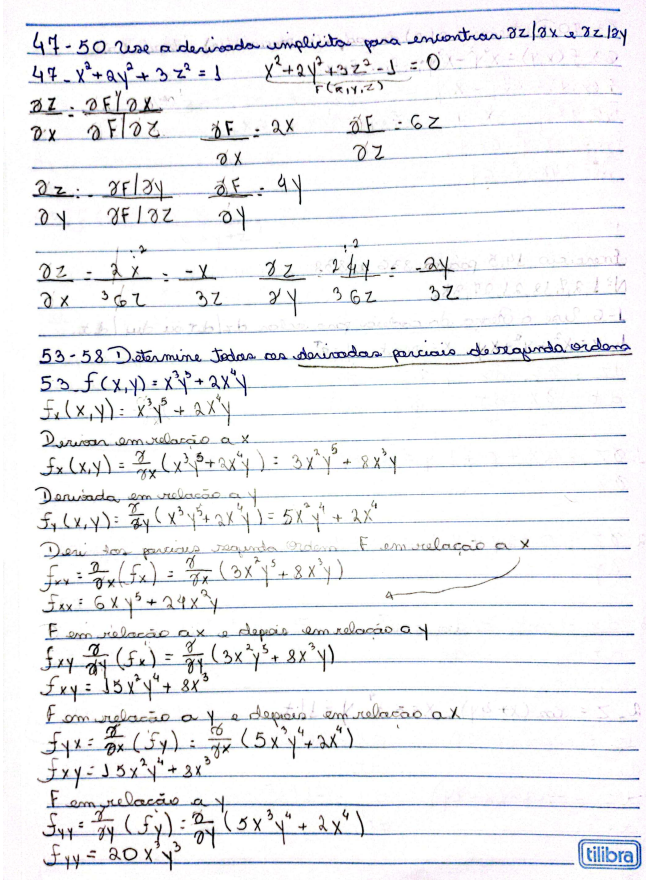 47-50 Use a derivada implicita para encontrar ∂z/∂x e ∂z/∂y
47- x²+2y²+3z²=1 x²+2y²+3z²-1=0
F(x,y,z)
∂z/∂x = ∂F/∂x / ∂F/∂z ∂F/∂x = 2x ∂F/∂z = 6z
∂z/∂y = - ∂F/∂y / ∂F/∂z ∂F/∂y = 4y
∂z/∂x = 2x :2 / ³6z = -x/3z ∂z/∂y = ²4y :2 / ³6z = -2y/3z
53-58 Determine todas as derivadas parciais de segunda ordem
53. f(x,y) = x³y⁵+2x⁴y
fx(x,y) = x³y⁵ + 2x⁴y
Derivar em relação a x
fx(x,y) = ∂/∂x (x³y⁵+2x⁴y) = 3x²y⁵ + 8x³y
Derivada em relação a y
fy(x,y) = ∂/∂y (x³y⁵+2x⁴y) = 5x²y⁴ + 2x⁴
parciais segunda ordem F em relação a x
fxx = ∂/∂x (fx) = ∂/∂x (3x²y⁵+8x³y)
fxx = 6xy⁵+24x²y
F em relação a x e depois em relação a y
fxy ∂/∂y (fx) = ∂/∂y (3x²y⁵+8x³y)
fxy = 15x²y⁴ + 8x³
F em relação a y e depois em relação a x
fyx = ∂/∂x (fy) = ∂/∂x (5x³y⁴+2x⁴)
fxy = 15x²y⁴+8x³
F em relação a y
fyy = ∂/∂y (fy) = ∂/∂y (5x³y⁴+2x⁴)
fyy = 20x³y³
tilibra